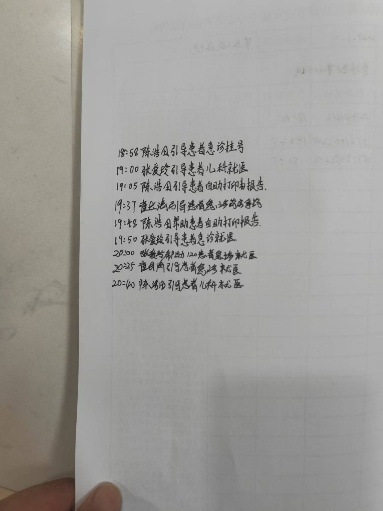 18:58 陈浩国引导患者急诊挂号
19:00 张爱玲引导患者儿科就医
19:05 陈浩国引导患者自助打印报告.
19:37 引导患者急诊
19:48 陈浩国帮助患者自助打印报告
19:50 张爱玲引导患者急诊就医
20:00 张爱玲帮助120患者急诊就医
20:25 引导患者急诊就医
20:40 陈浩国引导患者儿科就医